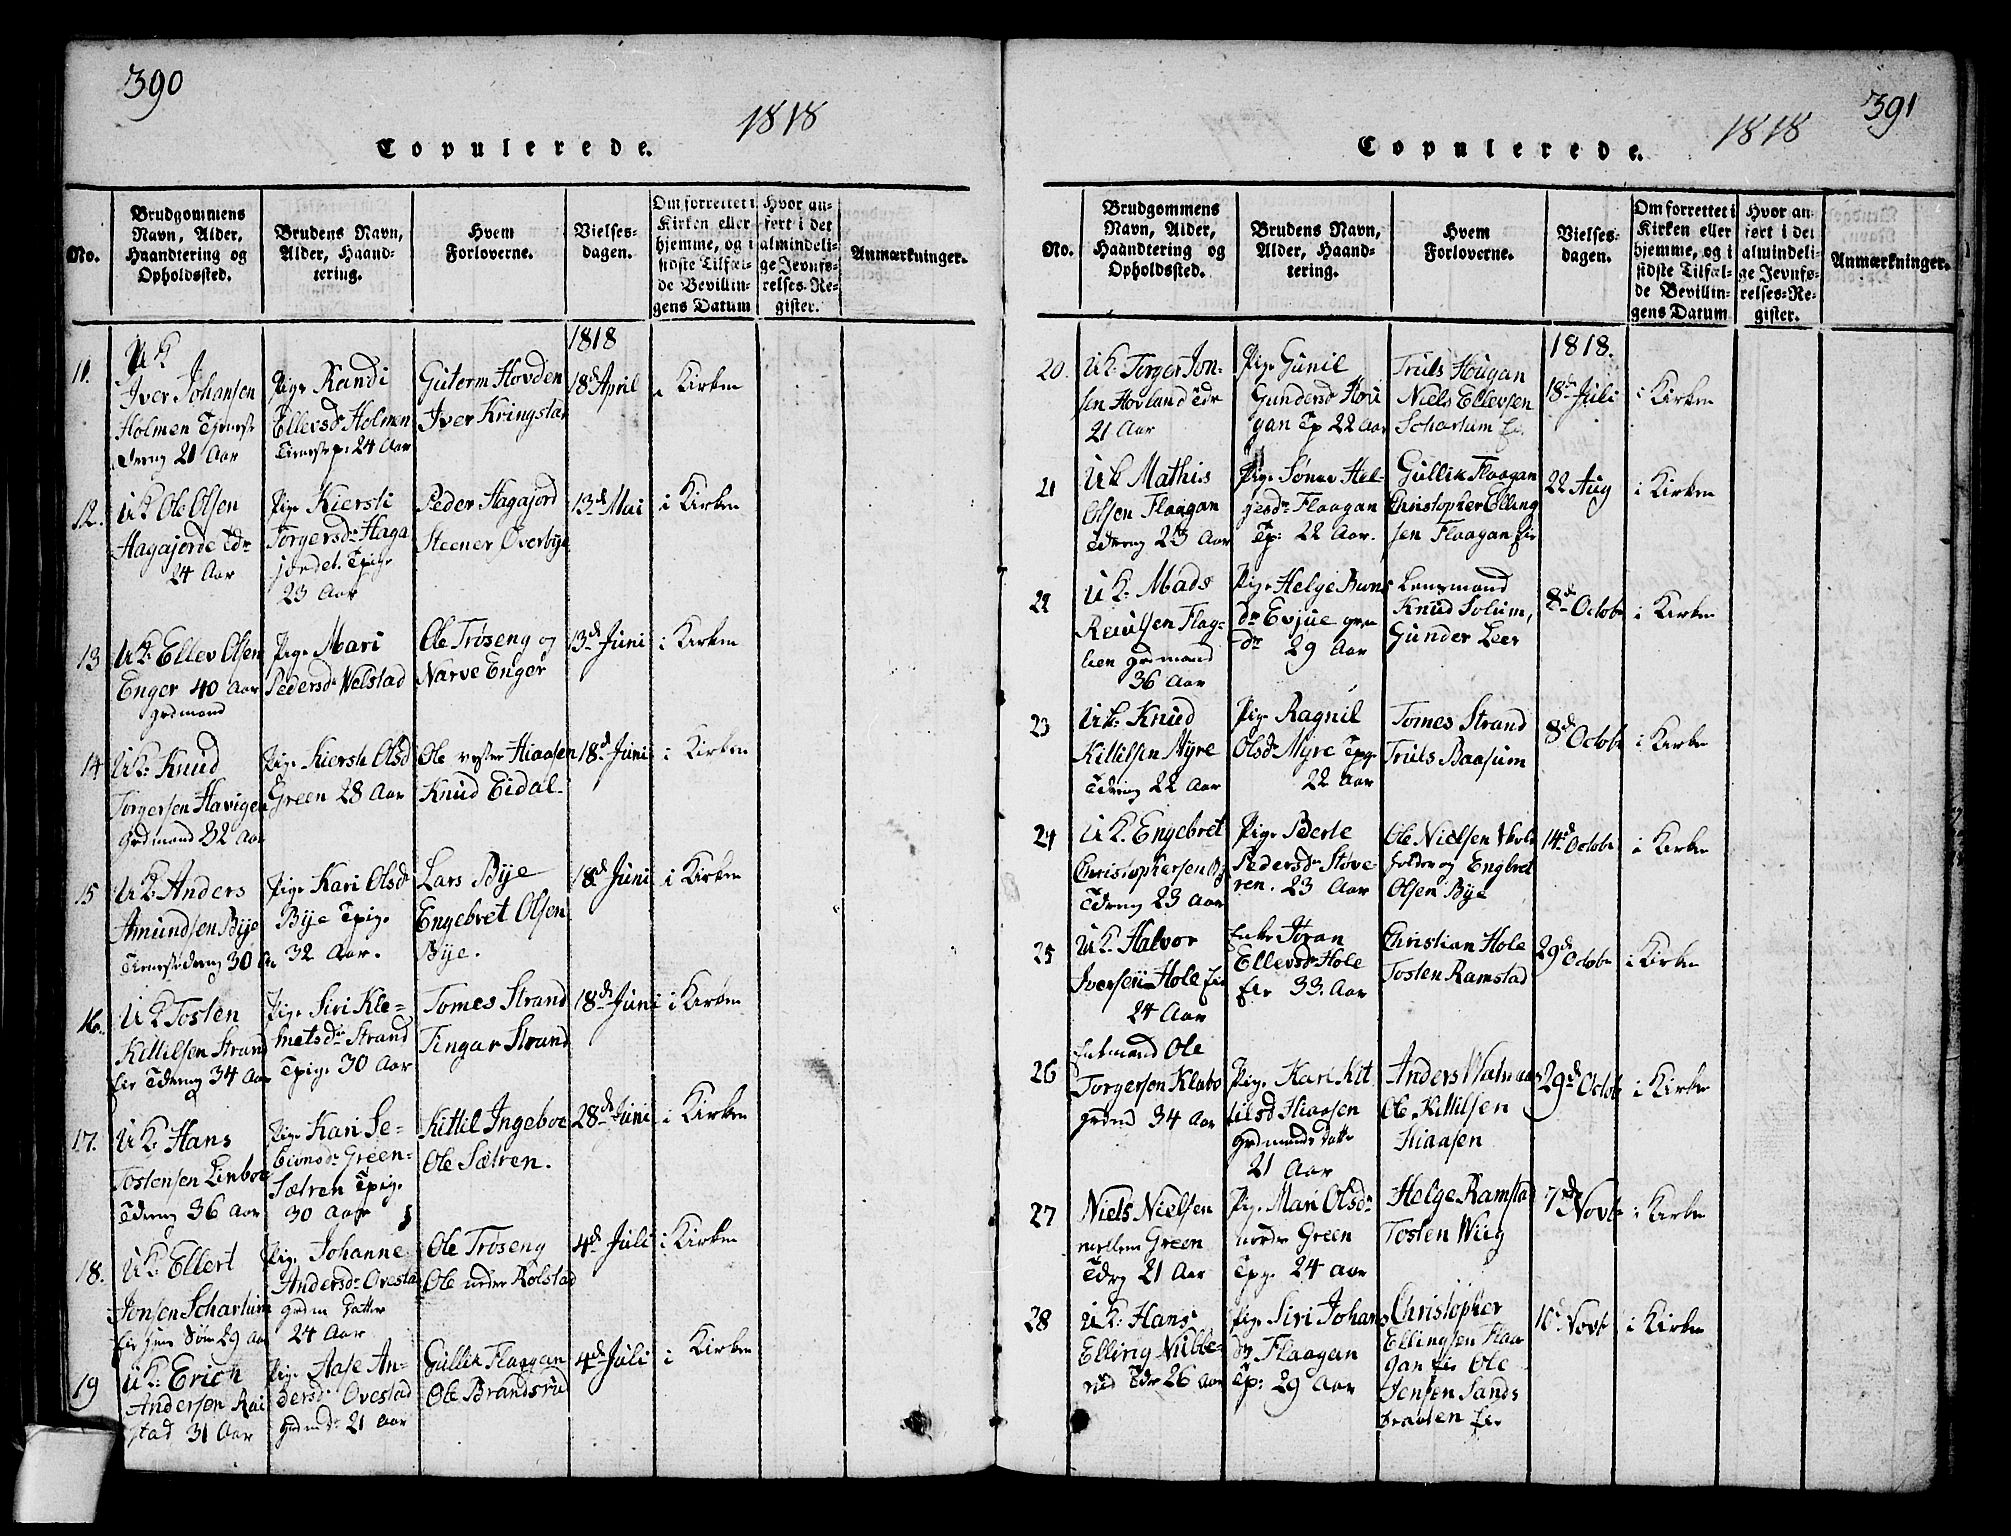 390
1818
Copulerede.
No.
Brudgommens
Navn, Alder,
Haandtering og
Opholdssted.
Brudens Navn,
Alder, Haand-
tering.
Hvem
Forloverne.
Vielses-
dagen.
Om forrettet i
Kirken eller
hjemme, og i
sidste Tilfæl-
de Bevillin-
gens Datum
Hvor an-
ført i det
almindeli-
ge Jevnfø-
relses-Re-
gister.
Anmærkninger.
1818
11.
UK
Iver Johansen
Holmen
21 Aar
Pige Randi
Ellevsd Holmen
24 Aar
Guterm Hovden
Iver Kringstad
18d April
i Kirken
12.
UK Ole Olsen
Hagajorde Tdr
24 Aar
Pige Kiersti
Torgersdr Haga
jordet. Tpige
23 Aar
Peder Hagajord
Steener Overbye
13d Mai
i Kirken
13
UK. Ellev Olsen
Enger 40 Aar
grdmand
Pige Mari
Pedersd Wolstad
Ole Trøseng og
Narve Enger
13d Juni
i Kirken
14
UK. Knud
Torgersen Havigen
grdmand 32 Aar
Pige Kiersti Olsd
Green 28 Aar
Ole vestre Hiaasen
Knud Eidal
18d Juni
i Kirken
15
UK. Anders
Amundsen Bye
30 Aar
Pige Kari Olsdr
Bye Tpige
32 Aar.
Lars Bye
Engebret Olsen
Bye.
18d Juni
i Kirken
16.
UK Tosten
Kittilsen Strand
Eier Tdreng 34 Aar
Pige Siri Kle-
metsdr Strand
Tpige 30 Aar
Tomes Strand
Tingar Strand
18d Juni
i Kirken
17.
UK. Hans
Tostensen Linboe
Tdreng 36 Aar
Pige Kari Se-
Green-
Sætren Tpige
30 Aar
Kittil Ingeboe
Ole Sætren.
28d Juni
i Kirken
18.
UK. Ellert
Jonsen Scharlum
Søn 29 Aar
Pige Johanne
Andersdr Ovestad
grdm Datter
24 Aar
Ole Trøseng
Ole nedre Rolstad
4d Juli
i Kirken
19
UK. Erich
Andersen Rai
stad 31 Aar
Pige Aase An-
dersdr Ovestad
grdmdr 21 Aar
Gullik Flaagan
Ole Brandsrud
4d Juli
i Kirken
391
1818
Copulerede.
No.
Brudgommens
Navn, Alder,
Haandtering og
Opholdssted.
Brudens Navn,
Alder, Haand-
tering.
Hvem
Forloverne.
Vielses-
dagen.
Om forrettet i
Kirken eller
hjemme, og i
sidste Tilfæl-
de Bevillin-
gens Datum
Hvor an-
ført i det
almindeli-
ge Jevnfø-
relses-Re-
gister.
Anmærkninger.
1818.
20.
UK. Torger Jon-
sen Hovland Tdr
21 Aar
Pige Gunil
Gundersd Hou
gan Tp 22 Aar
Truls Hougan
Niels Ellevsen
Scharlum Eier
18d Juli
i Kirken
21
UK Mathis
Olsen Flaagan
Tdreng 23 Aar
Pige Hel-
gesdr Flaagan
Tp: 22 Aar.
Gullik Flaagan
Christopher Elling
sen Flaagan Eier
22 Aug
i Kirken
22
UK. Mads
Flag-
lien grdmand
36 Aar
Pige Helge
dr Evjue grm
dr 29 Aar
Lensmand
Knud Solum,
Gunder Leer
8d Octobr
i Kirken
23
UK. Knud
Kittilsen Myre
Tdreng 22 Aar
Pige Ragnil
Olsdr Myre Tpige
22 Aar
Tomes Strand
Truls Baasum
8d Octobr
i Kirken
24
UK. Engebret
Christophersen Bye
Tdreng 23 Aar
Pige Berte
Pedersdr Støve-
ren. 23 Aar
Ole Nielsen
og Engbret
Olsen Bye
14d Octobr
i Kirken
25
UK. Halvor
Iversen Hole Eier
24 Aar
Enke Jøran
Ellevsdr Hole
Eier 33. Aar
Christian Hole
Tosten Ramstad
29d Octobr
i Kirken
26
Enkmand Ole
Torgersen Klabo
grdmd 34 Aar
Pige Kari Kit
tilsd Hiaasen
grdmands Datter
21 Aar
Anders
Ole Kittilsen
Hiaasen
29d Octobr
i Kirken
27
Niels Nielsen
mellem Green
Tdrg 21 Aar
Pige Mari Olsdr
nordre Green
Tpige 24 aar
Helge Ramstad
Tosten Wiig
7d Novbr
i Kirken
28
UK. Hans
Elling Nubbe-
rud Tdr 26 Aar
Pige Siri Johans
dr Flaagan
Tp: 29 Aar
Christopher
Ellingsen Flaa
gan Eier Ole
Jensen Sands
braaten Eier
10d Novbr
i Kirken